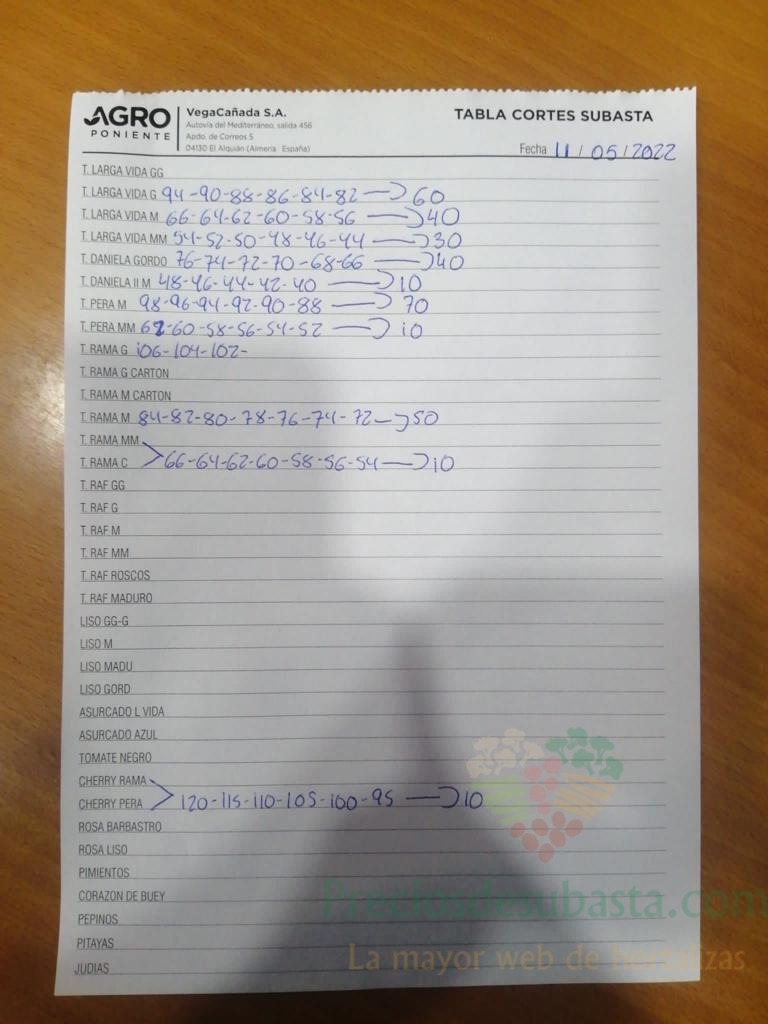 AGRO
PONIENTE
VegaCañada S.A.
Autovía del Mediterráneo, salida 456
Apdo. de Correos 5
04130 El Alquián (Almería · España)
TABLA CORTES SUBASTA
Fecha 11 / 05 / 2022
T. LARGA VIDA GG
T. LARGA VIDA G 94-90-88-86-84-82 → 60
T. LARGA VIDA M 66-64-62-60-58-56 → 40
T. LARGA VIDA MM 54-52-50-48-46-44 → 30
T. DANIELA GORDO 76-74-72-70-68-66 → 40
T. DANIELA II M 48-46-44-42-40 → 10
T. PERA M 98-96-94-92-90-88 → 70
T. PERA MM 62-60-58-56-54-52 → 10
T. RAMA G 106-104-102-
T. RAMA G CARTON
T. RAMA M CARTON
T. RAMA M 84-82-80-78-76-74-72 → 50
T. RAMA MM
T. RAMA C 66-64-62-60-58-56-54 → 10
T. RAF GG
T. RAF G
T. RAF M
T. RAF MM
T. RAF ROSCOS
T. RAF MADURO
LISO GG-G
LISO M
LISO MADU
LISO GORD
ASURCADO L VIDA
ASURCADO AZUL
TOMATE NEGRO
CHERRY RAMA
CHERRY PERA 120-115-110-105-100-95 → 10
ROSA BARBASTRO
ROSA LISO
PIMIENTOS
CORAZON DE BUEY
PEPINOS
PITAYAS
JUDIAS
Preciosdesubasta.com
La mayor web de hortalizas